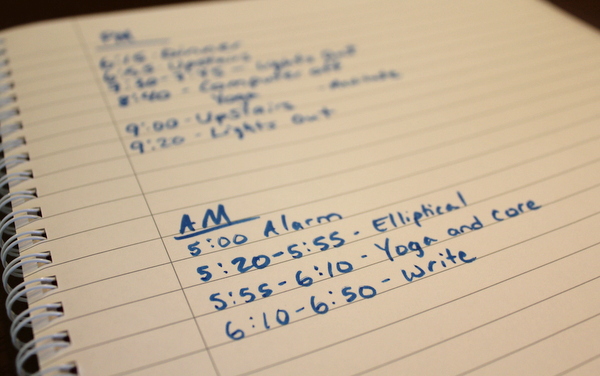 PM
6:15 Dinner
6:45 Upstairs
7:30-7:45 - Lights Out
8:40 - Computer off
Yoga
9:00 - Upstairs
9:20 - Lights Out
AM
5:00 Alarm
5:20-5:55 - Elliptical
5:55-6:10 - Yoga and core
6:10-6:50 - Write